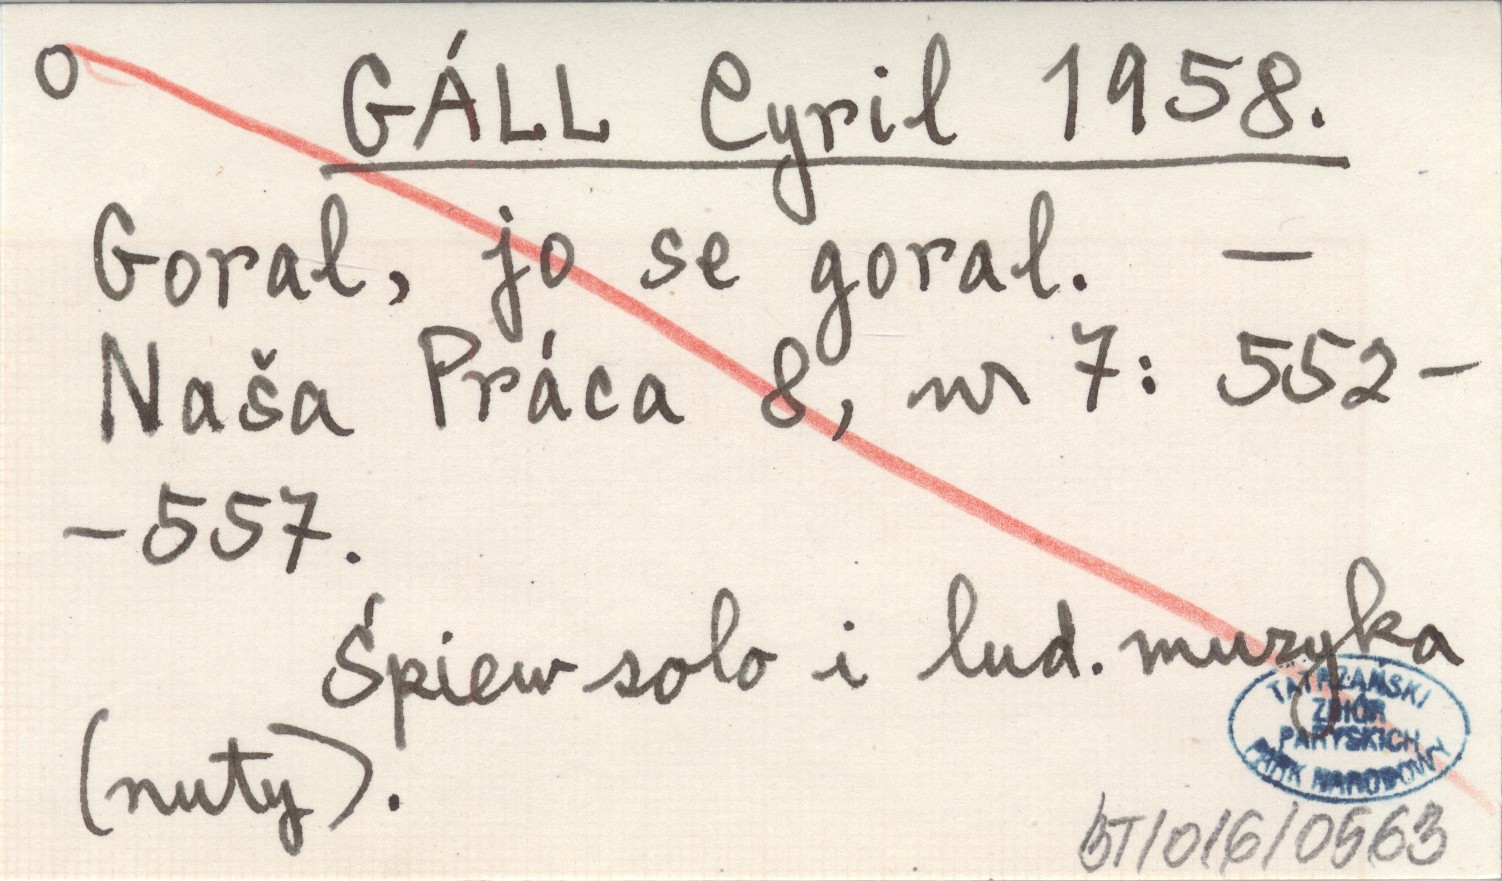 O GÁLL Cyril 1958.
Goral, jo se goral. —
Naša Práca 8, nr 7: 552-
-557.
Śpiew solo i lud. muzyka
(nuty).
TATRZAŃSKI
ZBIÓR
PARYSKICH
PARK NARODOWY
BT/016/0563